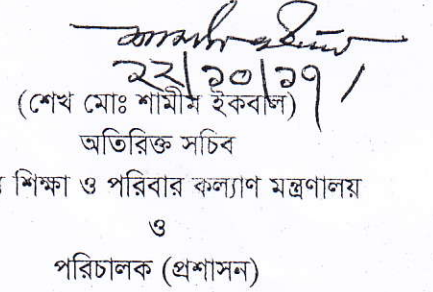 ২২/১০/১৭
(শেখ মোঃ শামীম ইকবাল)
অতিরিক্ত সচিব
শিক্ষা ও পরিবার কল্যাণ মন্ত্রণালয়
ও
পরিচালক (প্রশাসন)